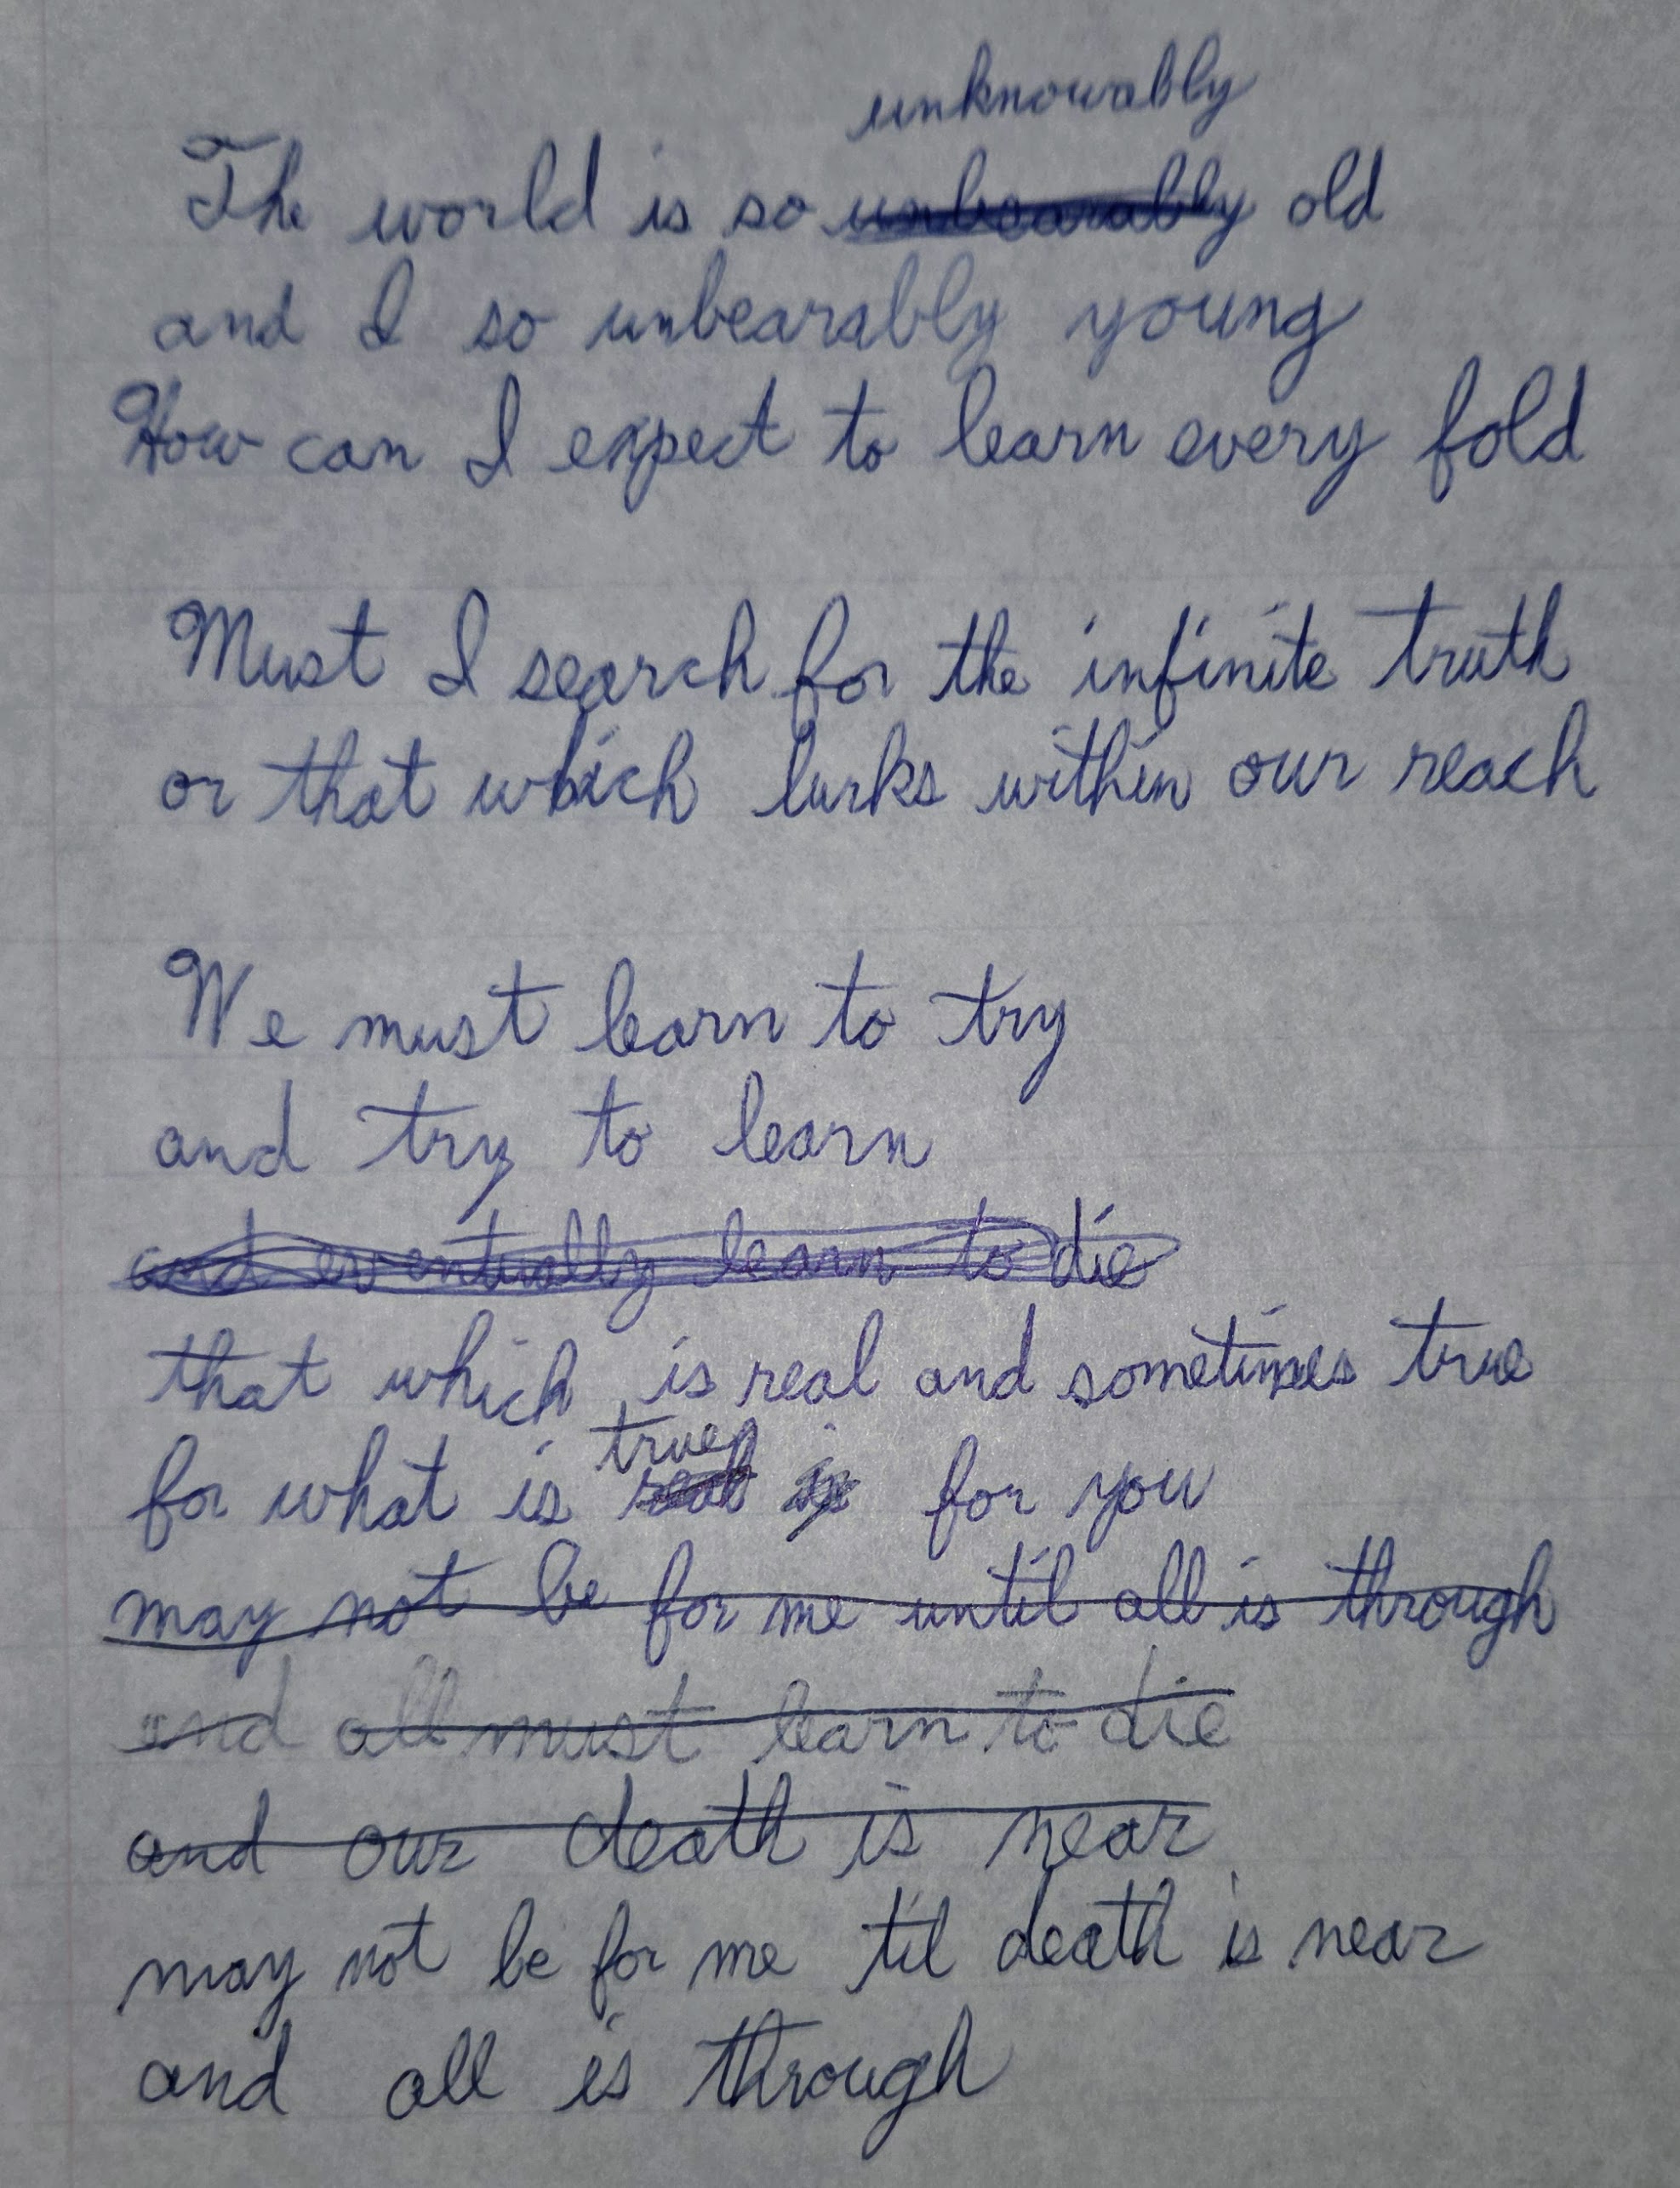 unknowably
The world is so unbearably old
and I so unbearably young
How can I expect to learn every fold
Must I search for the infinite truth
or that which lurks within our reach
We must learn to try
and try to learn
and eventually learn to die
that which is real and sometimes true
true
for what is real is for you
may not be for me until all is through
and all must learn to die
and our death is near
may not be for me til death is near
and all is through